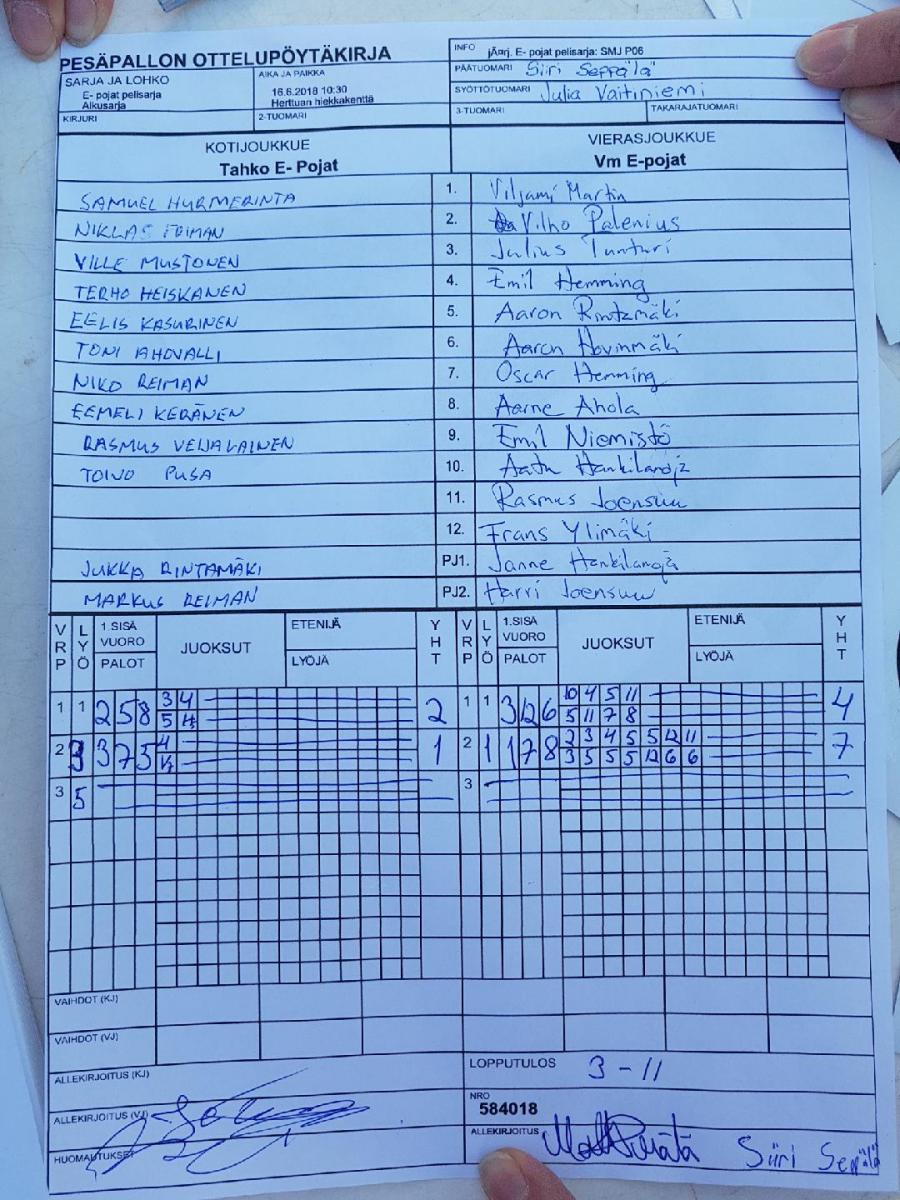 PESÄPALLON OTTELUPÖYTÄKIRJA
INFO jÃ¤rj. E- pojat pelisarja: SMJ P06
SARJA JA LOHKO
E- pojat pelisarja
Alkusarja
AIKA JA PAIKKA
16.6.2018 10:30
Herttuan hiekkakenttä
PÄÄTUOMARI Siiri Seppälä
SYÖTTÖTUOMARI Julia Vaitiniemi
KIRJURI 2-TUOMARI 3-TUOMARI TAKARAJATUOMARI
KOTIJOUKKUE VIERASJOUKKUE
Tahko E- Pojat Vm E-pojat
SAMUEL HURMERINTA 1. Viljami Martin
NIKLAS REIMAN 2. Vilho Palenius
VILLE MUSTONEN 3. Julius Tunturi
TERHO HEISKANEN 4. Emil Hemming
EELIS KASURINEN 5. Aaron Rintamäki
TONI AHOVALLI 6. Aaron Hovinmäki
NIKO REIMAN 7. Oscar Hemming
EEMELI KERÄNEN 8. Aarne Ahola
RASMUS VEIJALAINEN 9. Emil Niemistö
TOIVO PUSA 10. Aatu Hankilanoja
11. Rasmus Joensuu
12. Frans Ylimäki
JUKKA RINTAMÄKI PJ1. Janne Hankilanoja
MARKUS REIMAN PJ2. Harri Joensuu
VRP LYÖ 1.SISÄ VUORO PALOT JUOKSUT ETENIJÄ LYÖJÄ YHT VRP LYÖ 1.SISÄ VUORO PALOT JUOKSUT ETENIJÄ LYÖJÄ YHT
1 1 2 5 8 3 4 2 1 1 3 12 6 10 4 5 11 4
5 4 5 11 7 8
2 3 3 7 5 4 1 2 1 1 7 8 2 3 4 5 5 12 11 7
3 5 5 5 12 6 6
3 5 3
VAIHDOT (KJ)
VAIHDOT (VJ)
ALLEKIRJOITUS (KJ) LOPPUTULOS 3 - 11
ALLEKIRJOITUS (VJ) NRO 584018
HUOMAUTUKSET ALLEKIRJOITUS Siiri Seppälä